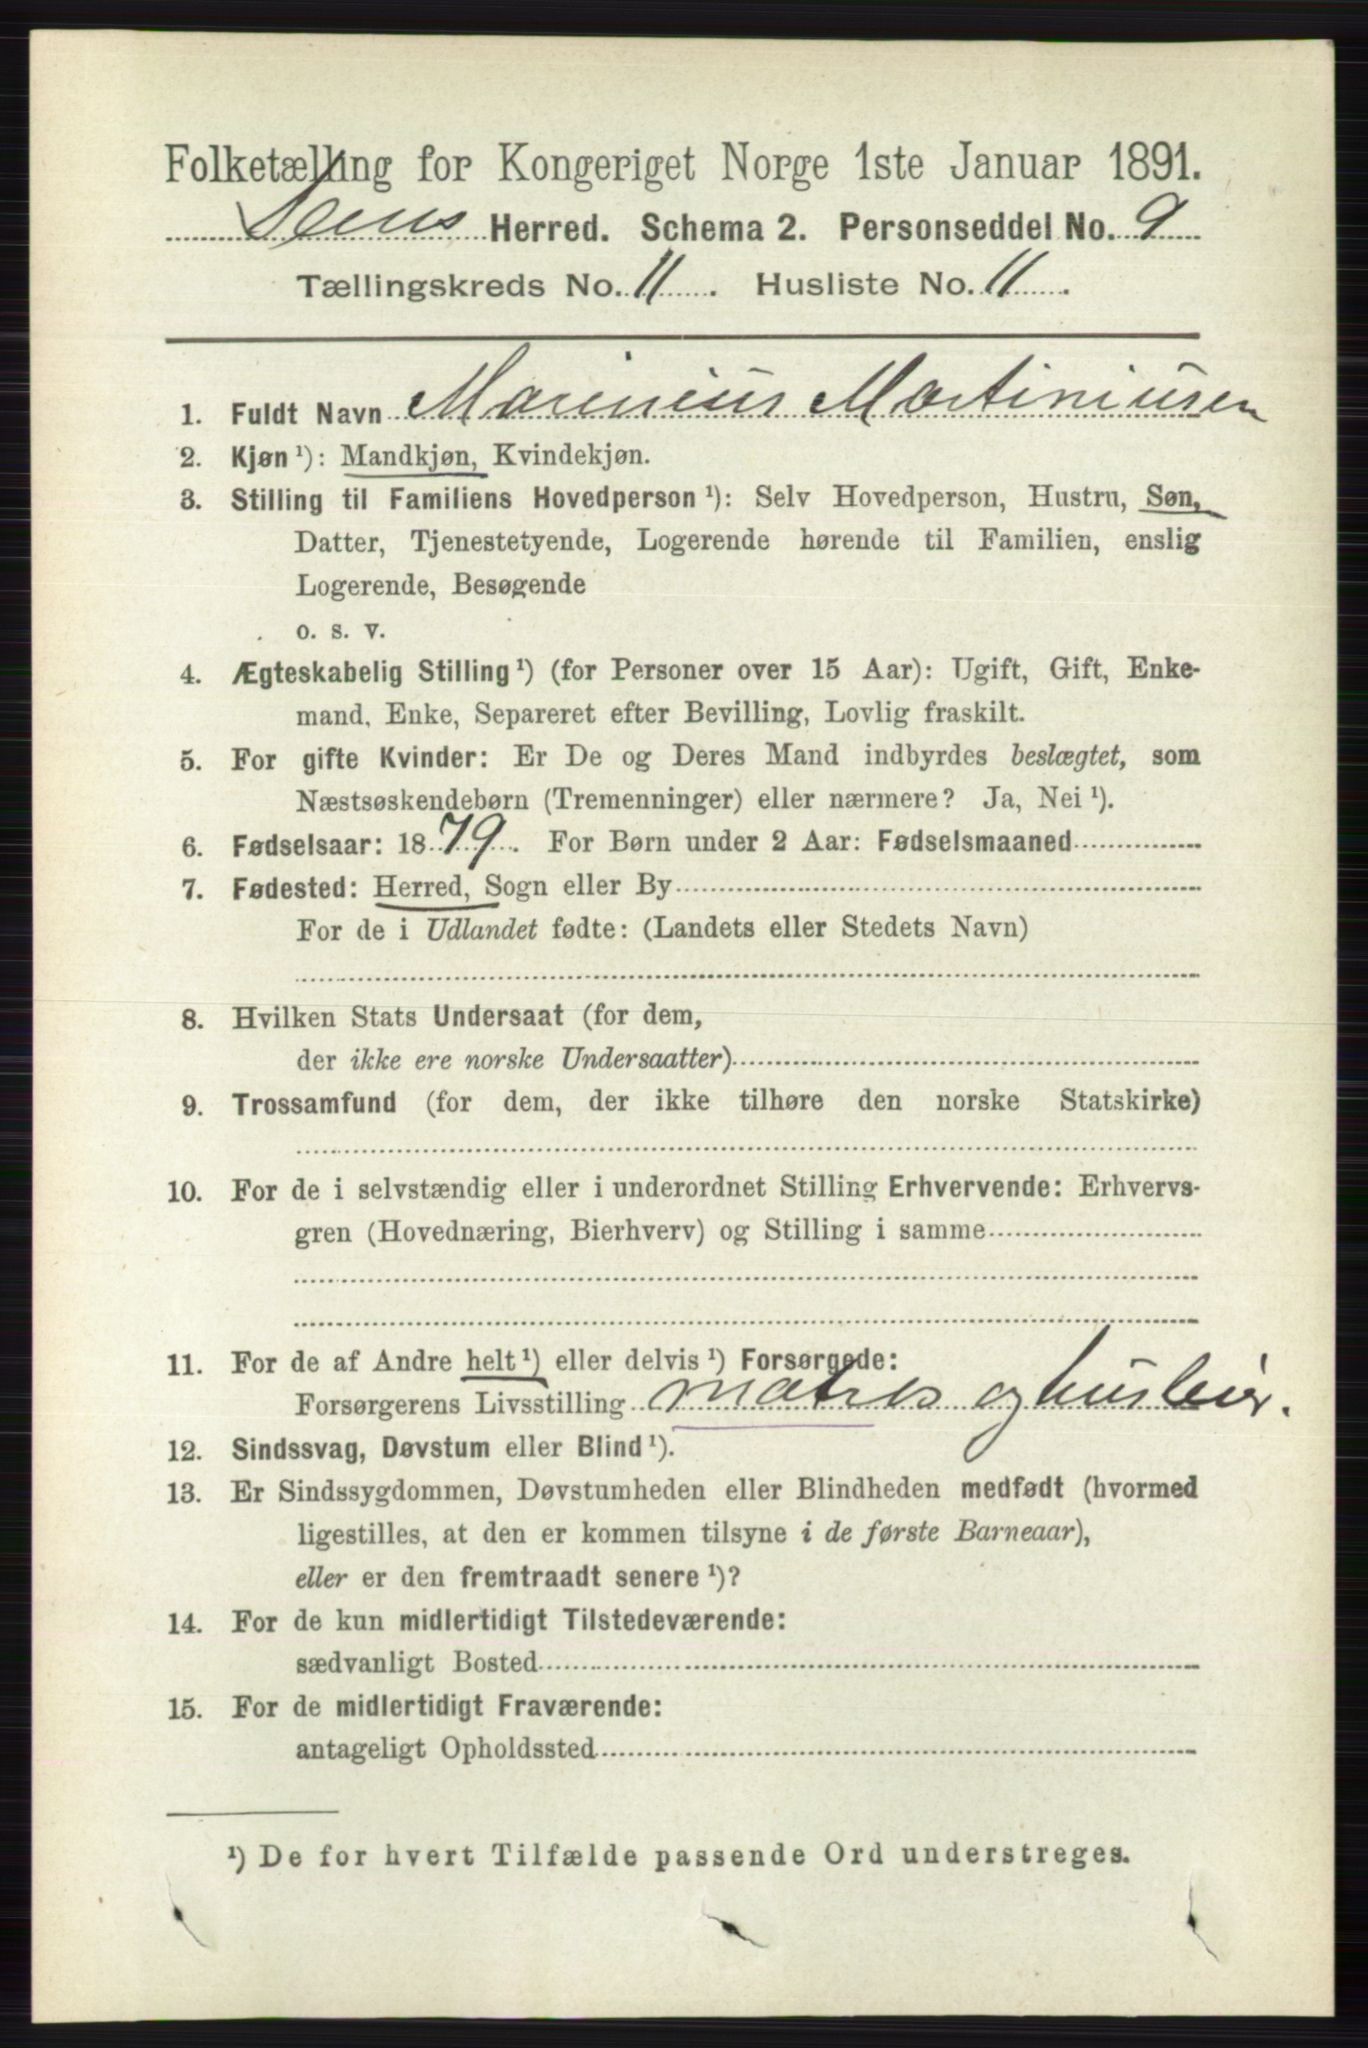 Folketælling for Kongeriget Norge 1ste Januar 1891.
Sems Herred. Schema 2. Personseddel No. 9
Tællingskreds No. 11. Husliste No. 11.
1. Fuldt Navn Marinius Martiniusen
2. Kjøn ¹): Mandkjøn, Kvindekjøn.
3. Stilling til Familiens Hovedperson ¹): Selv Hovedperson, Hustru, Søn,
Datter, Tjenestetyende, Logerende hørende til Familien, enslig
Logerende, Besøgende
o. s. v.
4. Ægteskabelig Stilling ¹) (for Personer over 15 Aar): Ugift, Gift, Enke-
mand, Enke, Separeret efter Bevilling, Lovlig fraskilt.
5. For gifte Kvinder: Er De og Deres Mand indbyrdes beslægtet, som
Næstsøskendebørn (Tremenninger) eller nærmere? Ja, Nei ¹).
6. Fødselsaar: 1879. For Børn under 2 Aar: Fødselsmaaned
7. Fødested: Herred, Sogn eller By
For de i Udlandet fødte: (Landets eller Stedets Navn)
8. Hvilken Stats Undersaat (for dem,
der ikke ere norske Undersaatter)
9. Trossamfund (for dem, der ikke tilhøre den norske Statskirke)
10. For de i selvstændig eller i underordnet Stilling Erhvervende: Erhvervs-
gren (Hovednæring, Bierhverv) og Stilling i samme
11. For de af Andre helt ¹) eller delvis ¹) Forsørgede:
Forsørgerens Livsstilling matros og husleier.
12. Sindssvag, Døvstum eller Blind ¹).
13. Er Sindssygdommen, Døvstumheden eller Blindheden medfødt (hvormed
ligestilles, at den er kommen tilsyne i de første Barneaar),
eller er den fremtraadt senere ¹)?
14. For de kun midlertidigt Tilstedeværende:
sædvanligt Bosted
15. For de midlertidigt Fraværende:
antageligt Opholdssted
¹) De for hvert Tilfælde passende Ord understreges.